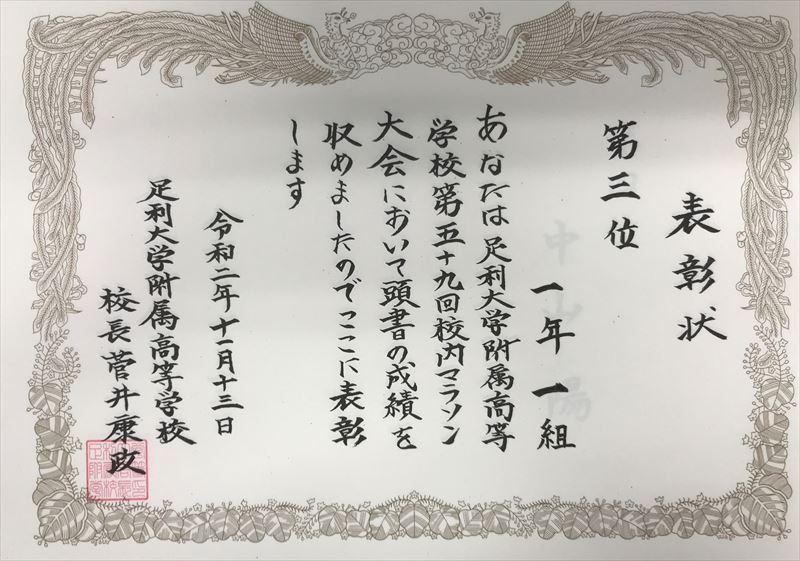 表彰状
第三位
一年一組
あなたは足利大学附属高等
学校第五十九回校内マラソン
大会において頭書の成績を
収めましたのでここに表彰
します
令和二年十一月十三日
足利大学附属高等学校
校長菅井康政